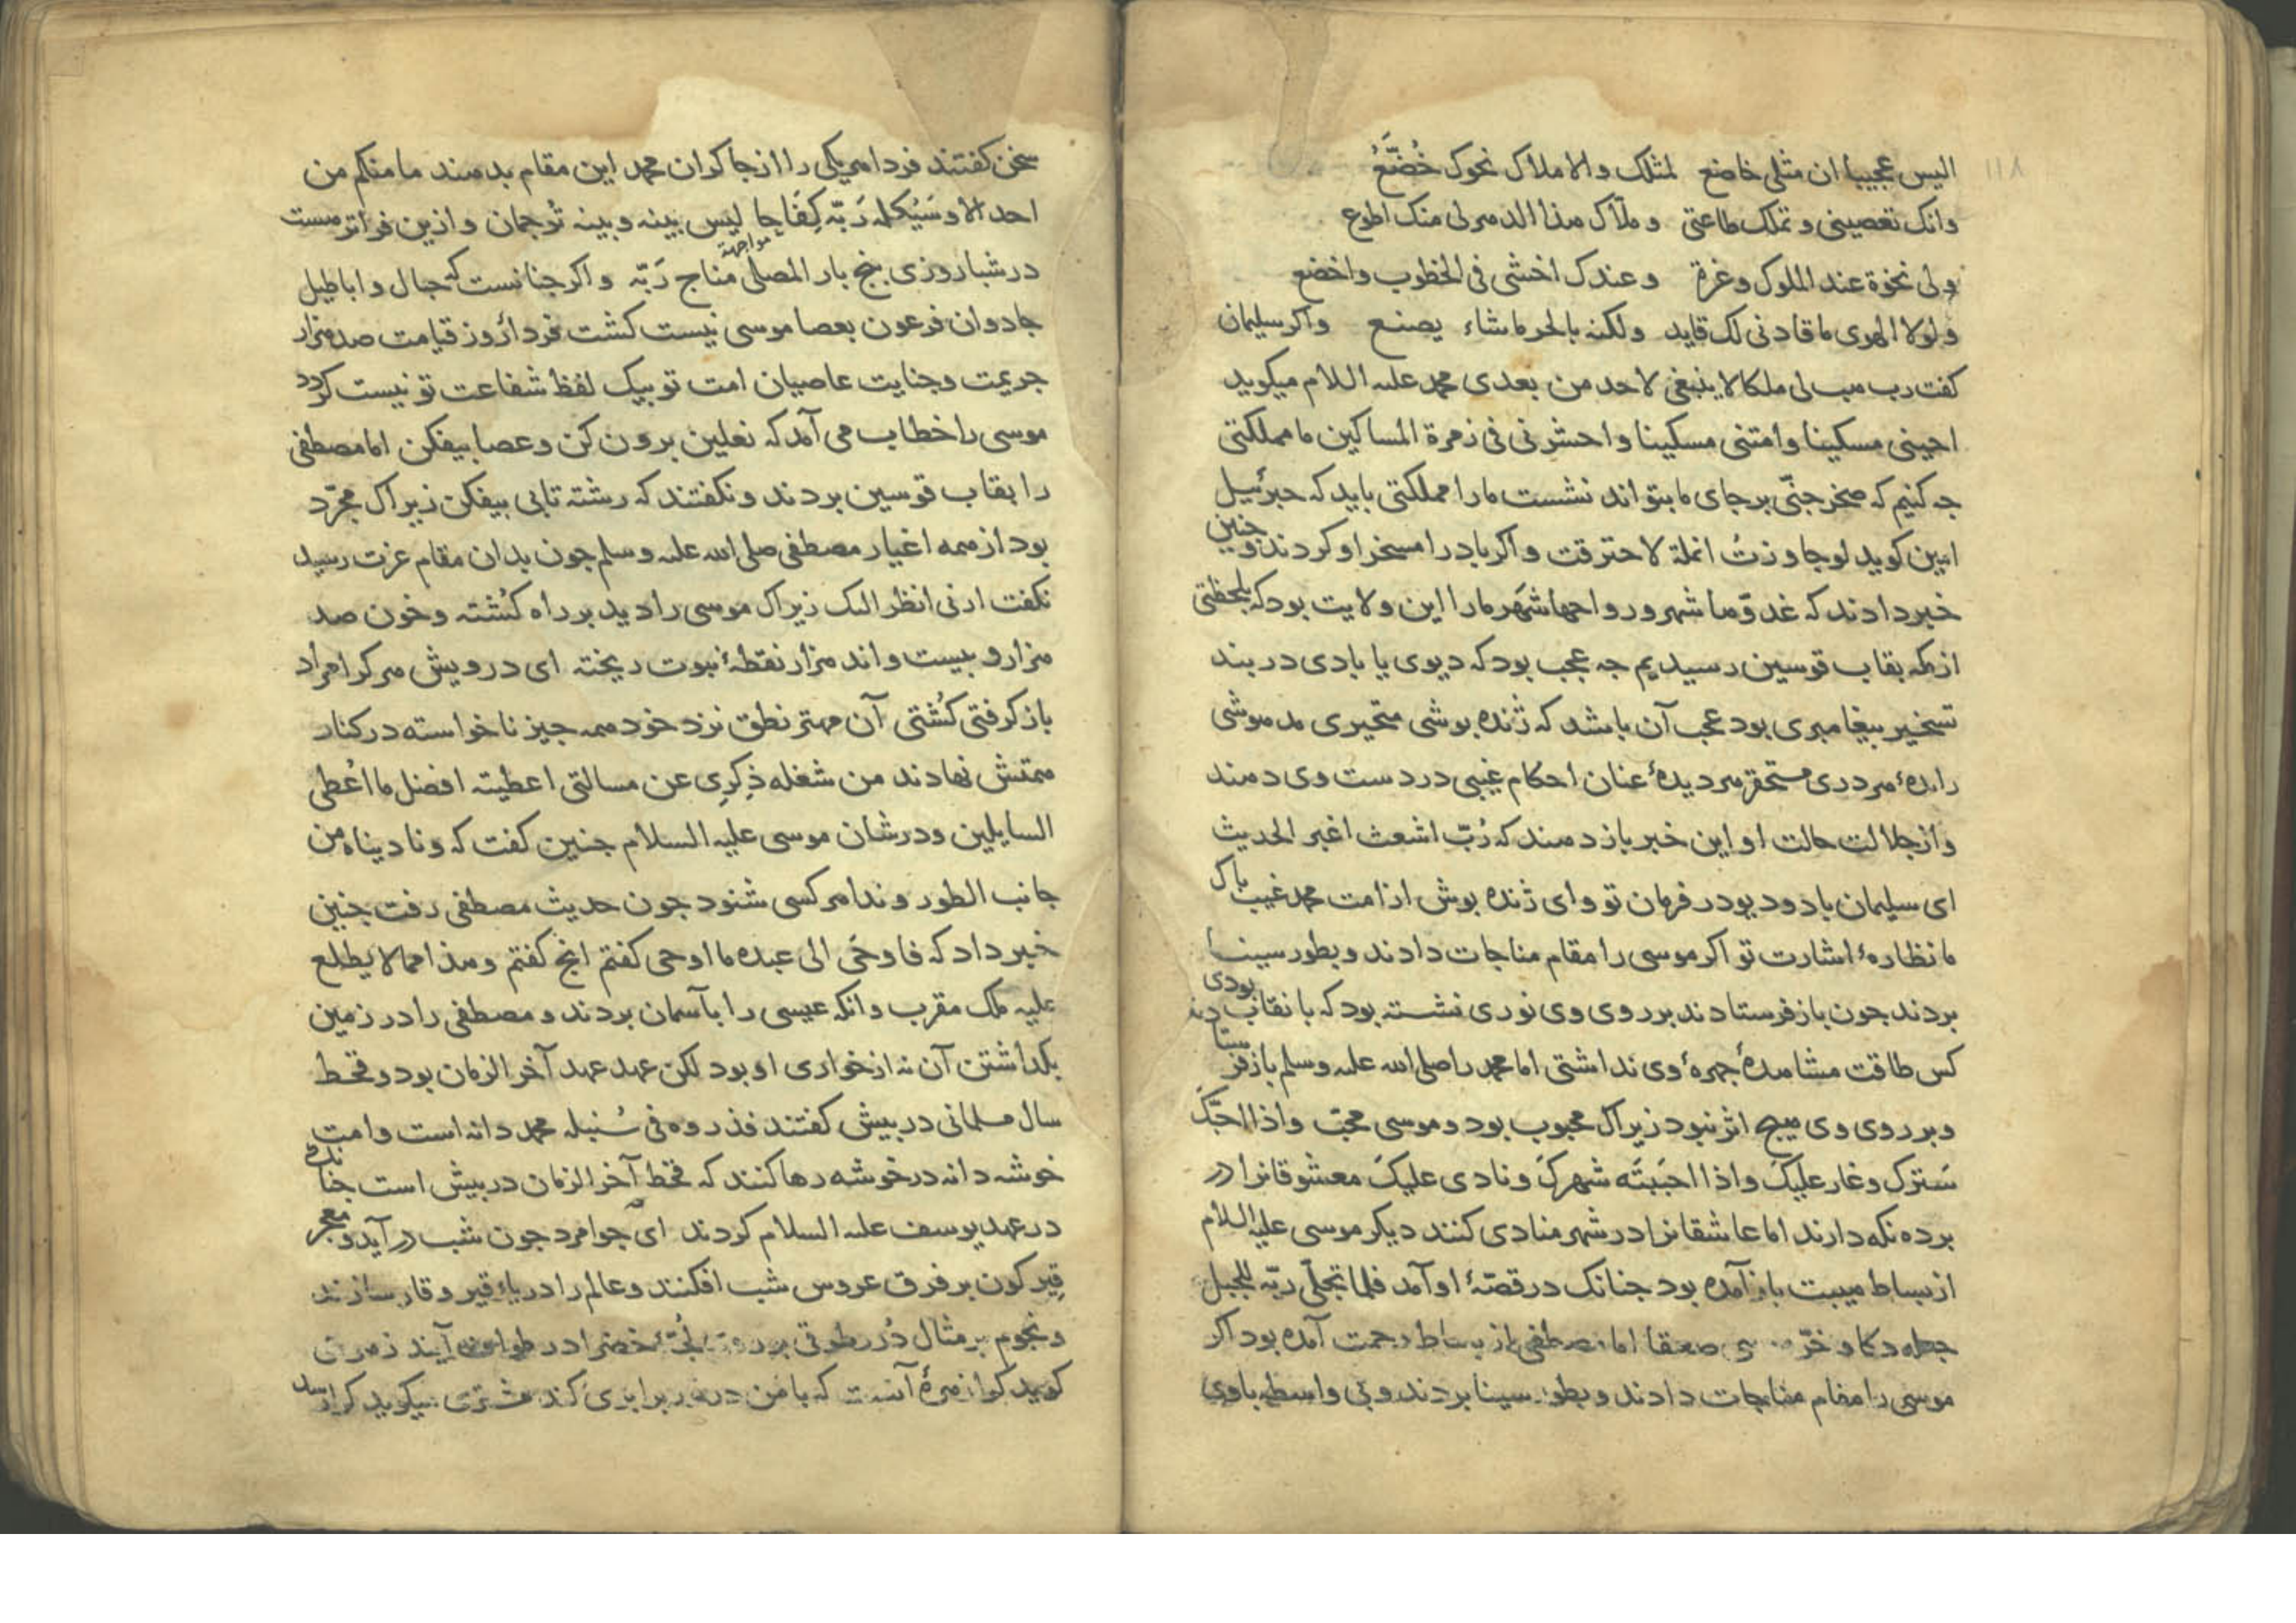 ۱۱۸
الیس عجیبا ان مثلی خاضع لمثلک والاملاک نحوک خُضَّعُ
وانک تعصینی و تملک طاعتی و ملّاک هذا الدهر لی منک اطوع
ولی نخوة عند الملوک وغرة وعندک اخشی فی الخطوب واخضع
ولولا الهوی ما قادنی لک قاید ولکنه بالحر ما شاء یصنع واکر سلیمان
کفت رب هب لی ملکا لا ینبغی لاحد من بعدی محمد علیه السلام میکوید
احینی مسکینا وامتنی مسکینا واحشرنی فی زمرة المساکین ما مملکتی
جه کنیم که صخر جنّی بر جای ما بتواند نشست ما را مملکتی باید که جبرئیل
امین کوید لو جاوزتُ انملة لاحترقت واکر باد را مسخر او کردند و جنین
خبر دادند که غدوّها شهر ورواحها شهر ما را این ولایت بود که بلحظتی
از مکه بقاب قوسین رسیدیم جه عجب بود که دیوی یا بادی در بند
تسخیر بیغامبری بود عجب آن باشد که ژنده بوشی متحیری مدهوشی
راندهٔ هر دری مستحقر هر دیدهٔ عنان احکام غیبی در دست وی دهند
واز جلالت حالت او این خبر باز دهند که رُبّ اشعث اغبر الحدیث
ای سلیمان باد و دیو در فرمان تو وای ژنده بوش از امت محمد غیب باک
ما نظارهٔ اشارت تو اکر موسی را مقام مناجات دادند وبطور سینا
بردند جون باز فرستادند بر روی وی نوری نشسته بود که با نقاب بودی
کس طاقت مشاهدهٔ جهرهٔ وی نداشتی اما محمد را صلی الله علیه وسلم باز فرستادند
وبر روی وی هیج اثر نبود زیراک محبوب بود و موسی محبّ واذا احبّکَ
سَترک وغار علیکَ واذا احبَبتَه شهرکَ ونادی علیکَ معشوقانرا در
برده نکه دارند اما عاشقانرا در شهر منادی کنند دیکر موسی علیه السلام
از بساط هیبت باز آمده بود جنانک در قصّهٔ او آمد فلما تجلّی ربّه للجبل
جعله دکا وخرّ موسی صعقا اما مصطفی از بساط رحمت آمده بود اکر
موسی را مقام مناجات دادند وبطور سینا بردند وبی واسطه باوی
سخن کفتند فردا هر یکی را از جاکران محمد این مقام بدهند ما منکم من
احد الا وسَیُکلمه رَبّه کِفَاحا لیس بینه وبینه تُرجمان وازین فراتر هست
مواجهة
در شباروزی بنج بار المصلی مناج رَبّه واکر جنانست که حبال واباطیل
جادوان فرعون بعصا موسی نیست کشت فردا روز قیامت صد هزار
جریمت وجنایت عاصیان امت تو بیک لفظ شفاعت تو نیست کردد
موسی را خطاب می آمد که نعلین برون کن وعصا بیفکن اما مصطفی
را بقاب قوسین بردند ونکفتند که رشته تابی بیفکن زیراک مجرّد
بود از همه اغیار مصطفی صلی الله علیه وسلم جون بدان مقام عزت رسید
نکفت ارنی انظر الیک زیراک موسی را دید بر راه کُشته وخون صد
هزار وبیست واند هزار نقطهٔ نبوت ریخته ای درویش هر کرا مراد
باز کرفتی کُشتی آن مهتر نطق نزد خود همه جیز ناخواسته در کنار
همتش نهادند من شغله ذِکرِی عن مسالتی اعطیته افضل ما اُعطی
السایلین ودرشان موسی علیه السلام جنین کفت که ونادیناه من
جانب الطور وندا هر کسی شنود جون حدیث مصطفی رفت جنین
خبر داد که فاوحَی الی عبده ما اوحی کفتم انج کفتم وهذا مما لا یطلع
علیه ملک مقرب وانکه عیسی را بآسمان بردند ومصطفی را در زمین
بکذاشتن آن نه از خواری او بود لکن عهد عهد آخر الزمان بود وقحط
سال مسلمانی در بیش کفتند فذروه فی سُنبله محمد دانه است وامت
خوشه دانه در خوشه رها کنند که قحط آخر الزمان در بیش است جنانک
در عهد یوسف علیه السلام کردند ای جوامرد جون شب در آید ومعجر
قیر کون بر فرق عروس شب افکنند وعالم را دریاء قیر وقار سازند
ونجوم بر مثال دُرر طوقی بر روی لُجّهٔ خضرا در طواف آیند زهرت
کوید کرا زهرهٔ آنست که با من در نور برابری کند مشتری میکوید کرا رسد